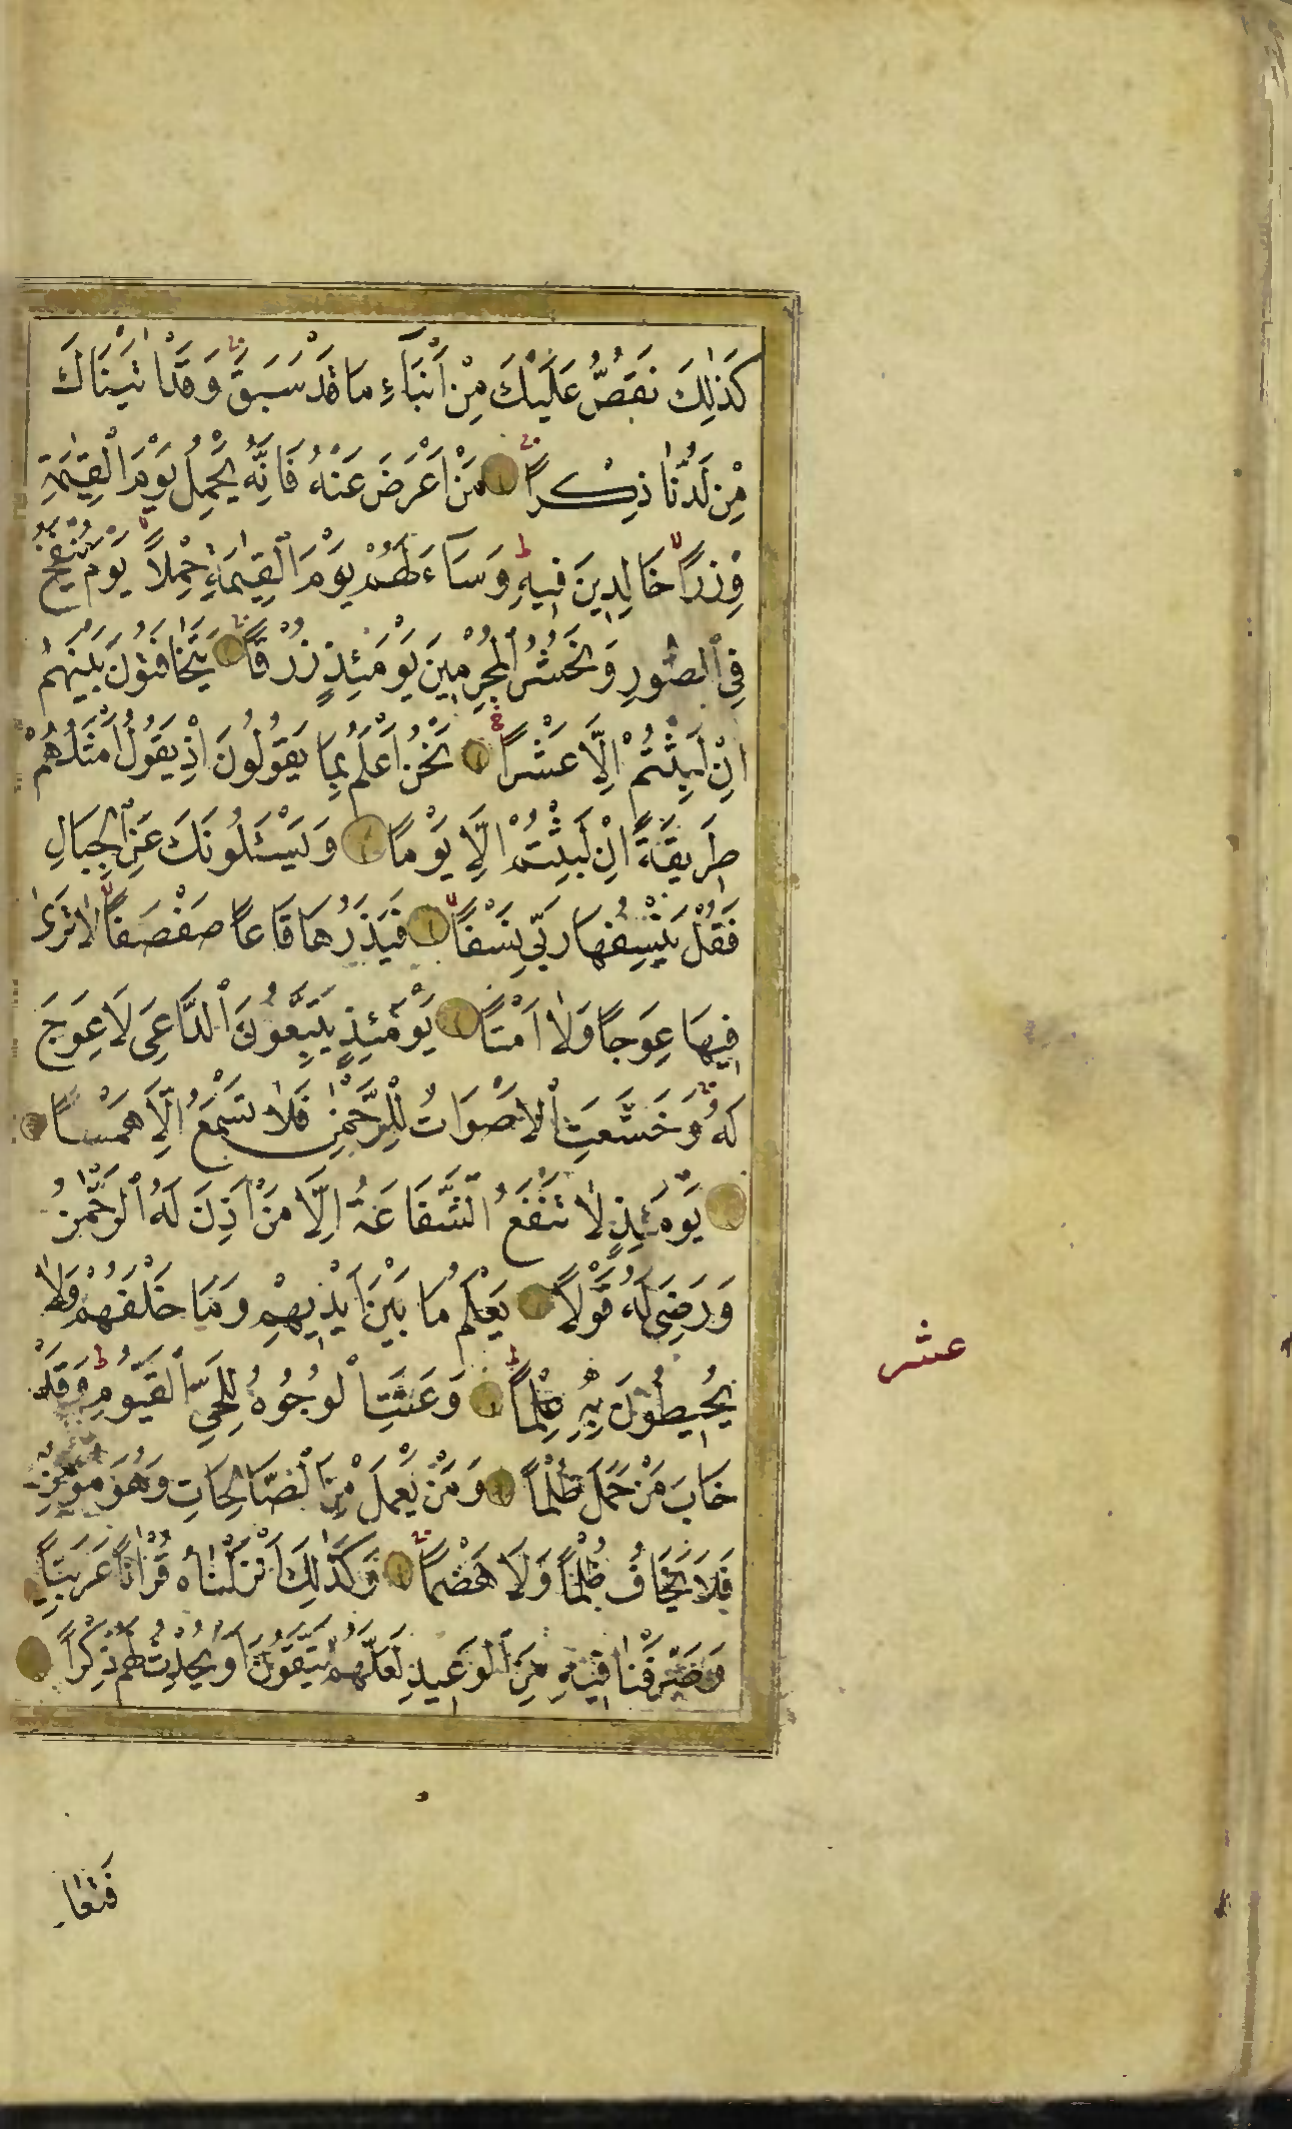 كَذٰلِكَ نَقُصُّ عَلَيْكَ مِنْ اَنْبَآءِ مَا قَدْ سَبَقَ وَقَدْ اٰتَيْنَاكَ
مِنْ لَدُنَّا ذِكْرًا مَنْ اَعْرَضَ عَنْهُ فَاِنَّهُ يَحْمِلُ يَوْمَ الْقِيٰمَةِ
وِزْرًا خَالِدِينَ فِيهِ وَسَآءَ لَهُمْ يَوْمَ الْقِيٰمَةِ حِمْلًا يَوْمَ يُنْفَخُ
فِي الصُّورِ وَنَحْشُرُ الْمُجْرِمِينَ يَوْمَئِذٍ زُرْقًا يَتَخَافَتُونَ بَيْنَهُمْ
اِنْ لَبِثْتُمْ اِلَّا عَشْرًا نَحْنُ اَعْلَمُ بِمَا يَقُولُونَ اِذْ يَقُولُ اَمْثَلُهُمْ
طَرِيقَةً اِنْ لَبِثْتُمْ اِلَّا يَوْمًا وَيَسْئَلُونَكَ عَنِ الْجِبَالِ
فَقُلْ يَنْسِفُهَا رَبِّي نَسْفًا فَيَذَرُهَا قَاعًا صَفْصَفًا لَا تَرٰى
فِيهَا عِوَجًا وَلَا اَمْتًا يَوْمَئِذٍ يَتَّبِعُونَ الدَّاعِيَ لَا عِوَجَ
لَهُ وَخَشَعَتِ الْاَصْوَاتُ لِلرَّحْمٰنِ فَلَا تَسْمَعُ اِلَّا هَمْسًا
يَوْمَئِذٍ لَا تَنْفَعُ الشَّفَاعَةُ اِلَّا مَنْ اَذِنَ لَهُ الرَّحْمٰنُ
وَرَضِيَ لَهُ قَوْلًا يَعْلَمُ مَا بَيْنَ اَيْدِيهِمْ وَمَا خَلْفَهُمْ وَلَا
يُحِيطُونَ بِهِ عِلْمًا وَعَنَتِ الْوُجُوهُ لِلْحَيِّ الْقَيُّومِ وَقَدْ
خَابَ مَنْ حَمَلَ ظُلْمًا وَمَنْ يَعْمَلْ مِنَ الصَّالِحَاتِ وَهُوَ مُؤْمِنٌ
فَلَا يَخَافُ ظُلْمًا وَلَا هَضْمًا وَكَذٰلِكَ اَنْزَلْنَاهُ قُرْاٰنًا عَرَبِيًّا
وَصَرَّفْنَا فِيهِ مِنَ الْوَعِيدِ لَعَلَّهُمْ يَتَّقُونَ اَوْ يُحْدِثُ لَهُمْ ذِكْرًا
عشر
فَتَعَا